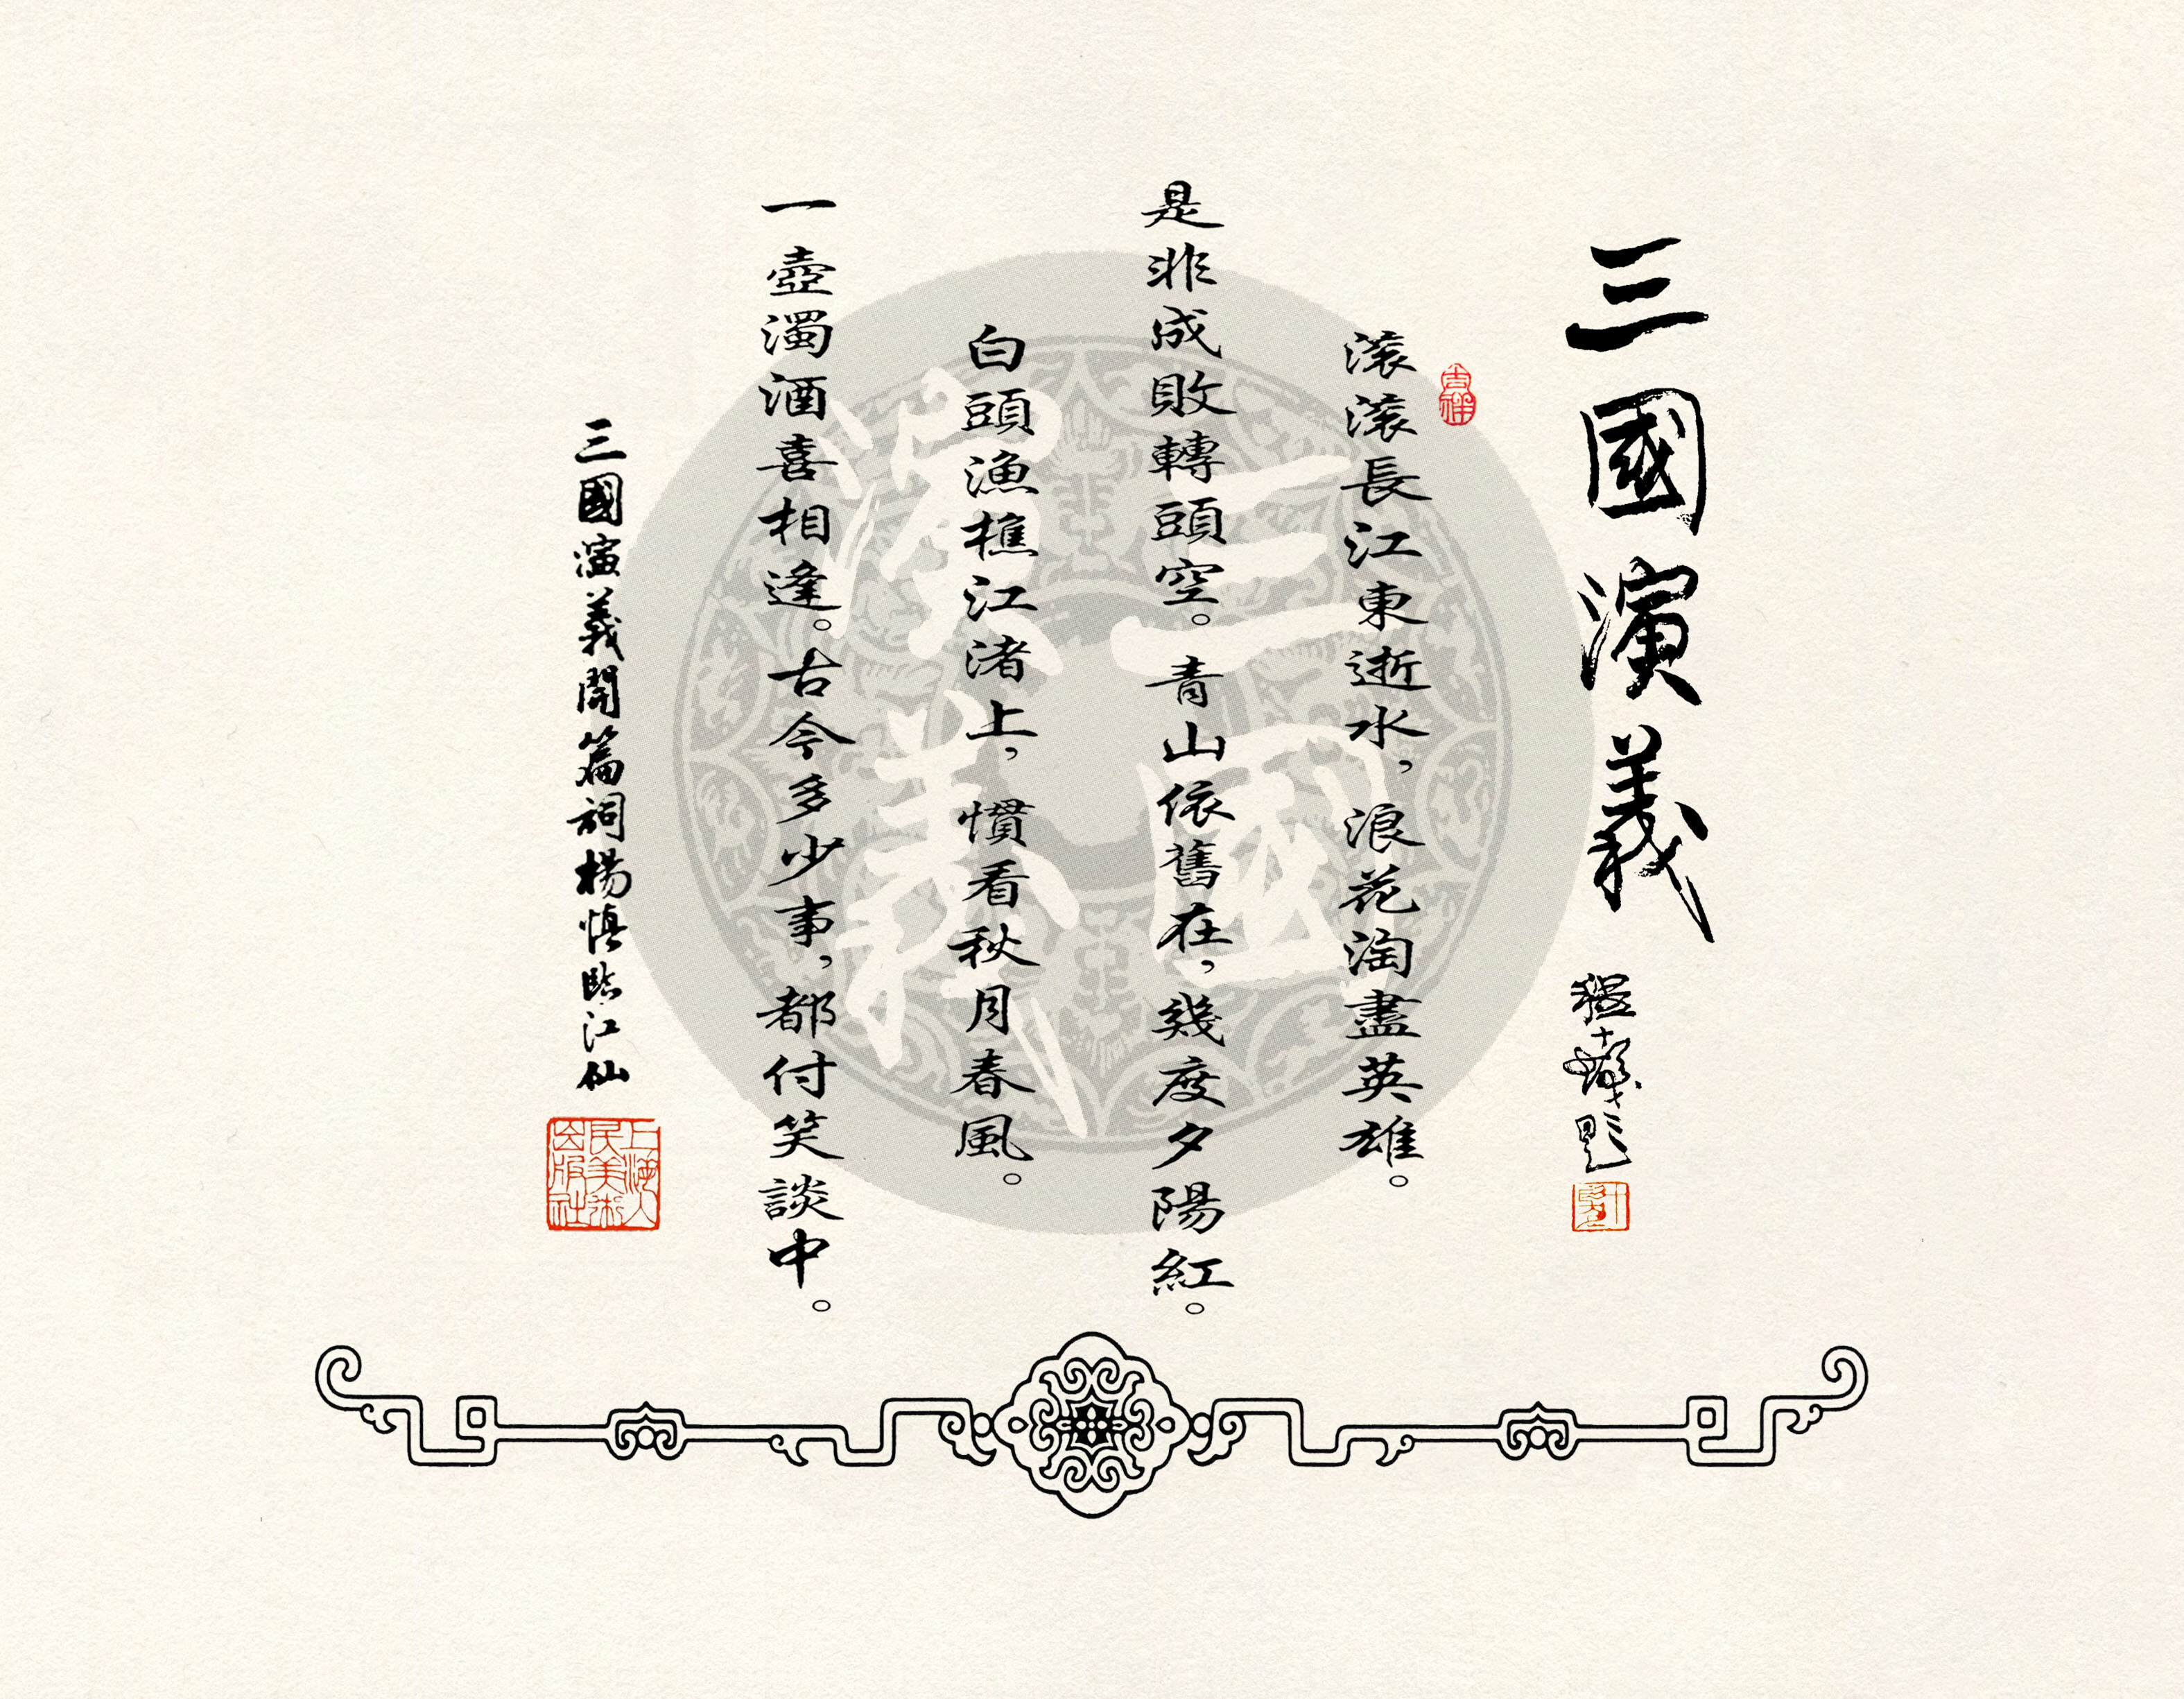 三國演義
程十髮題
吉祥
滾滾長江東逝水，浪花淘盡英雄。
是非成敗轉頭空。青山依舊在，幾度夕陽紅。
白頭漁樵江渚上，慣看秋月春風。
一壺濁酒喜相逢。古今多少事，都付笑談中。
三國演義開篇詞楊慎臨江仙
上海人民美術出版社
三國演義